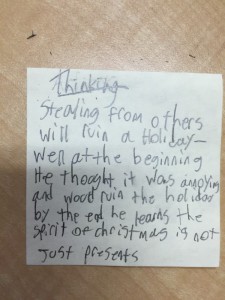 Thinking
Stealing from others
will ruin a Holiday—
well at the beginning
He thought it was annoying
and wood ruin the holiday
by the end he learns the
spirit of christmas is not
just presents